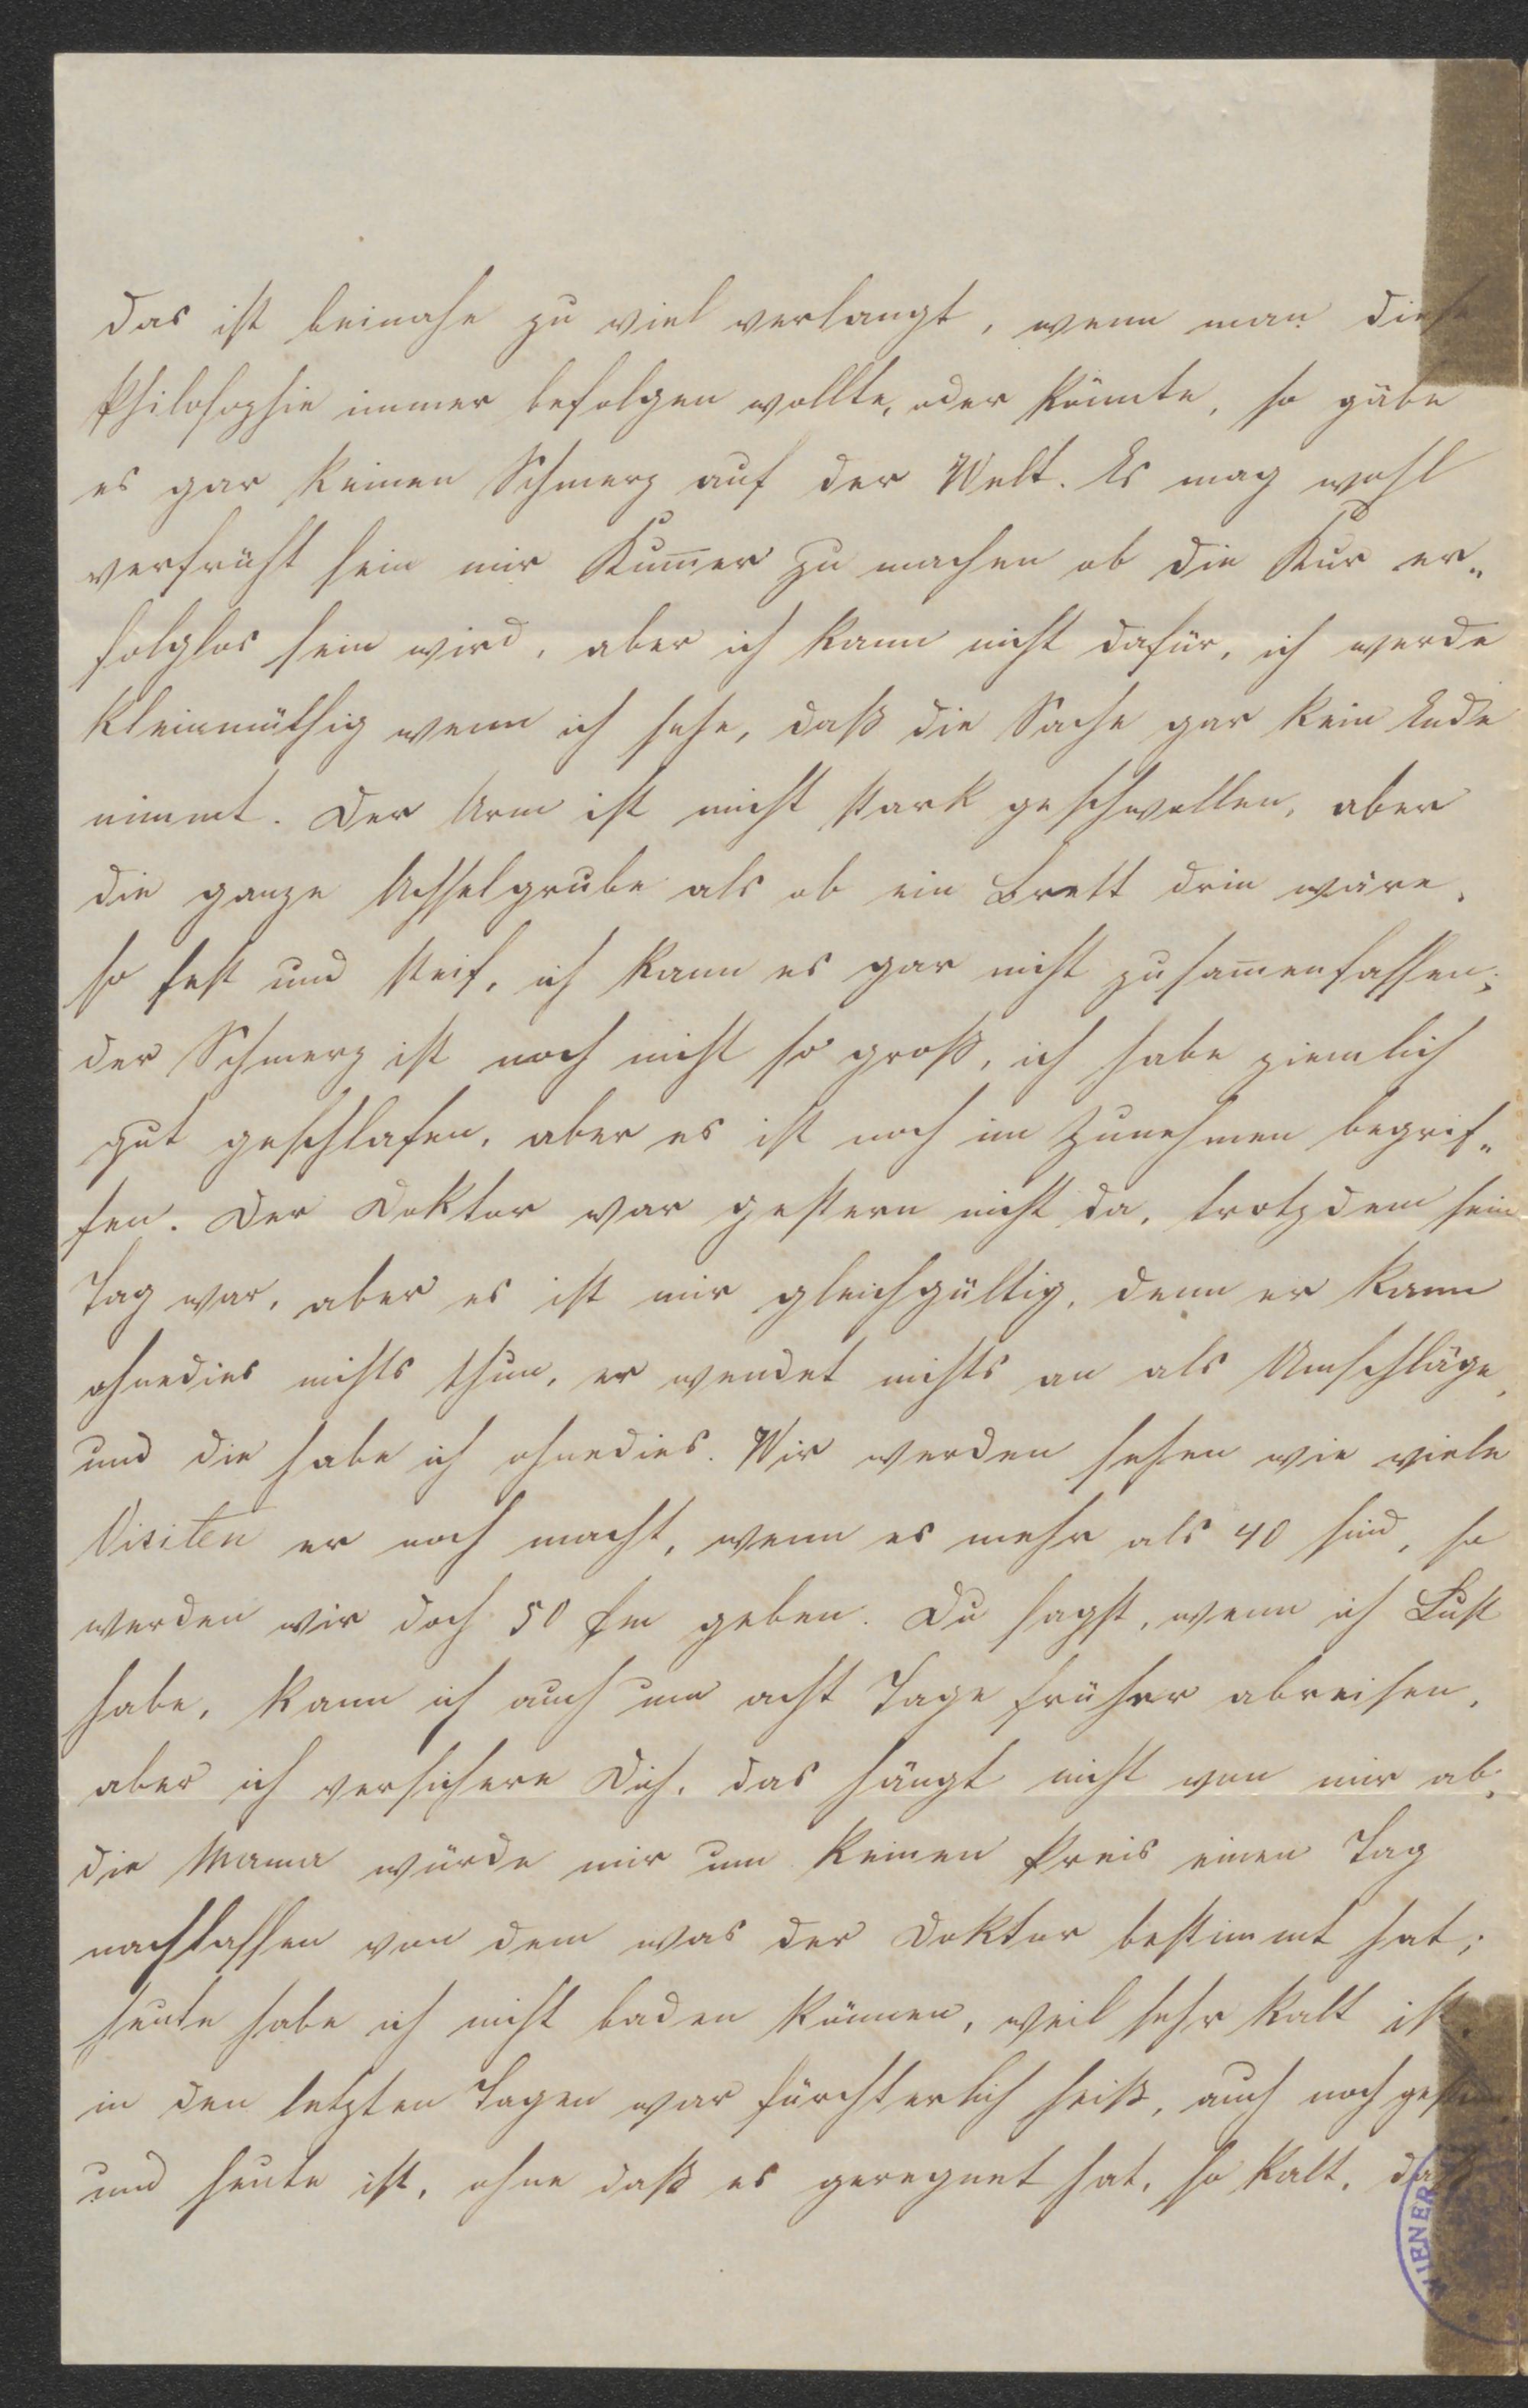 das ist beinahe zu viel verlangt, wenn man diese
Philosophie immer befolgen wollte, oder könnte, so gäbe
es gar keinen Schmerz auf der Welt. Es mag wohl
verfrüht sein mir Kum̅er zu machen ob die Kur er„
folglos sein wird, aber ich kann nicht dafür, ich werde
kleinmüthig wenn ich sehe, daß die Sache gar kein Ende
nimmt. Der Arm ist nicht stark geschwollen, aber
die ganze Achselgrube als ob ein Brett drin wäre,
so fest und steif, ich kann es gar nicht zusam̅enfassen;
der Schmerz ist noch nicht so groß, ich habe ziemlich
gut geschlafen, aber es ist noch im Zunehmen begrif„
fen. Der Doktor war gestern nicht da, trotzdem sein
Tag war, aber es ist mir gleichgültig, denn er kann
ohnedies nichts thun, er wendet nichts an als Umschläge,
und die habe ich ohnedies. Wir werden sehen wie viele
Visiten er noch macht, wenn es mehr als 40 sind, so
werden wir doch 50 geben. Du sagst, wenn ich Lust
habe, kann ich auch um acht Tage früher abreisen,
aber ich versichere Dich, das hängt nicht von mir ab,
die Mama würde mir um keinen Preis einen Tag
nachlassen von dem was der Doktor bestimmt hat;
heute habe ich nicht baden können, weil sehr kalt ist,
in den letzten Tagen war fürchterlich heiß, auch noch gestern,
und heute ist, ohne daß es geregnet hat, so kalt, daß
WIENER